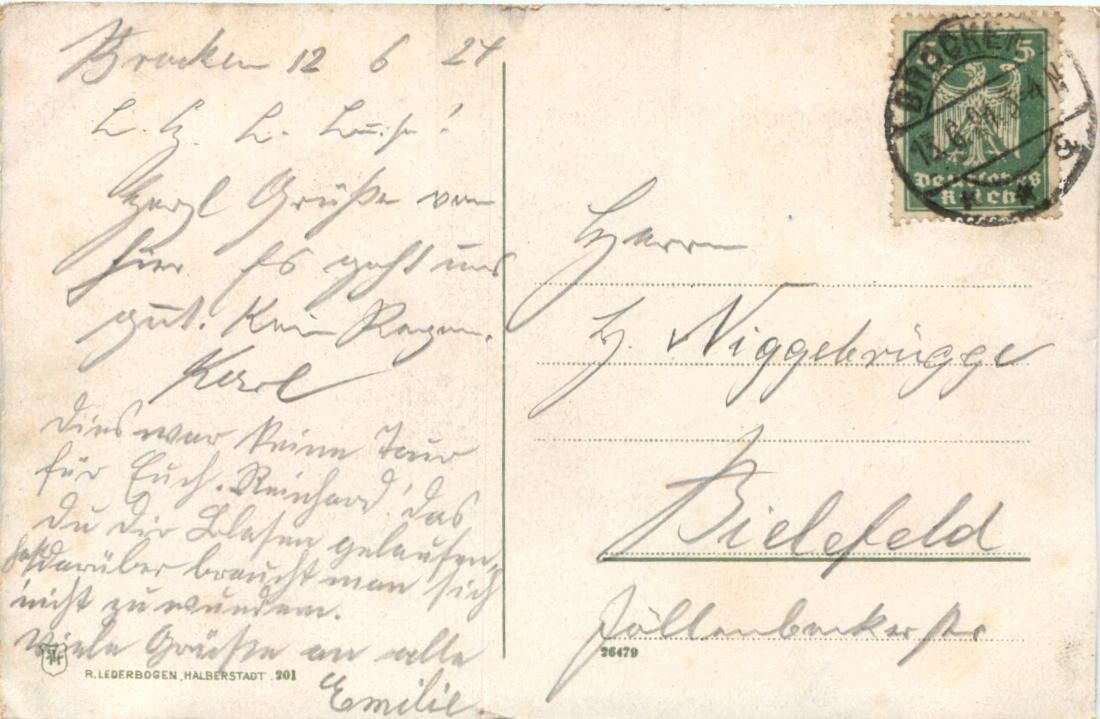 Brocken 12 6 24
L. H. L. Luise!
Herzl Grüße von
hier Es geht uns
gut. Kein Regen.
Karl
Dies war keine Tour
für Euch. Reinhard! das
du dir Blasen gelaufen,
hast darüber braucht man sich
nicht zu wundern.
Viele Grüße an alle
Emilie.
R. LEDERBOGEN, HALBERSTADT 201
BROCKEN
5 5
13.6. 3-4 N
Deutsches
Reich
Herrn
H. Niggebrügge
Bielefeld
Jöllenbeckerstr
26479